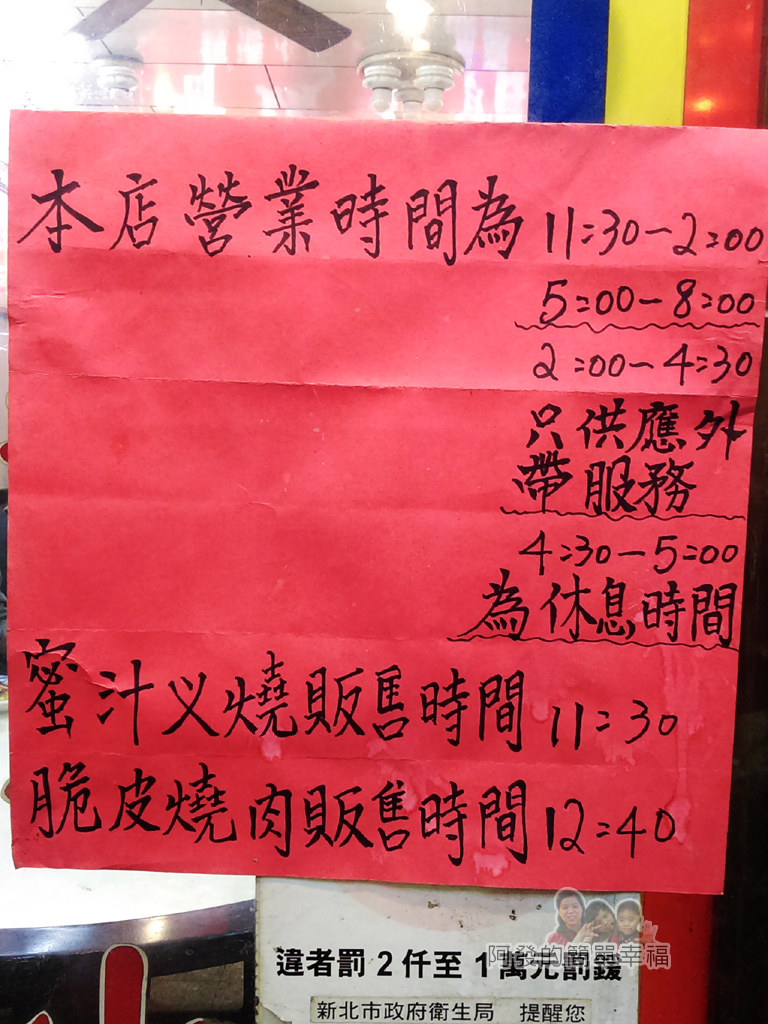 本店營業時間為 11:30-2:00
5:00-8:00
2:00-4:30
只供應外
帶服務
4:30-5:00
為休息時間
蜜汁义燒販售時間 11:30
脆皮燒肉販售時間 12:40
違者罰 2 仟至 1 萬元罰鍰
阿發的簡單幸福
新北市政府衛生局 提醒您